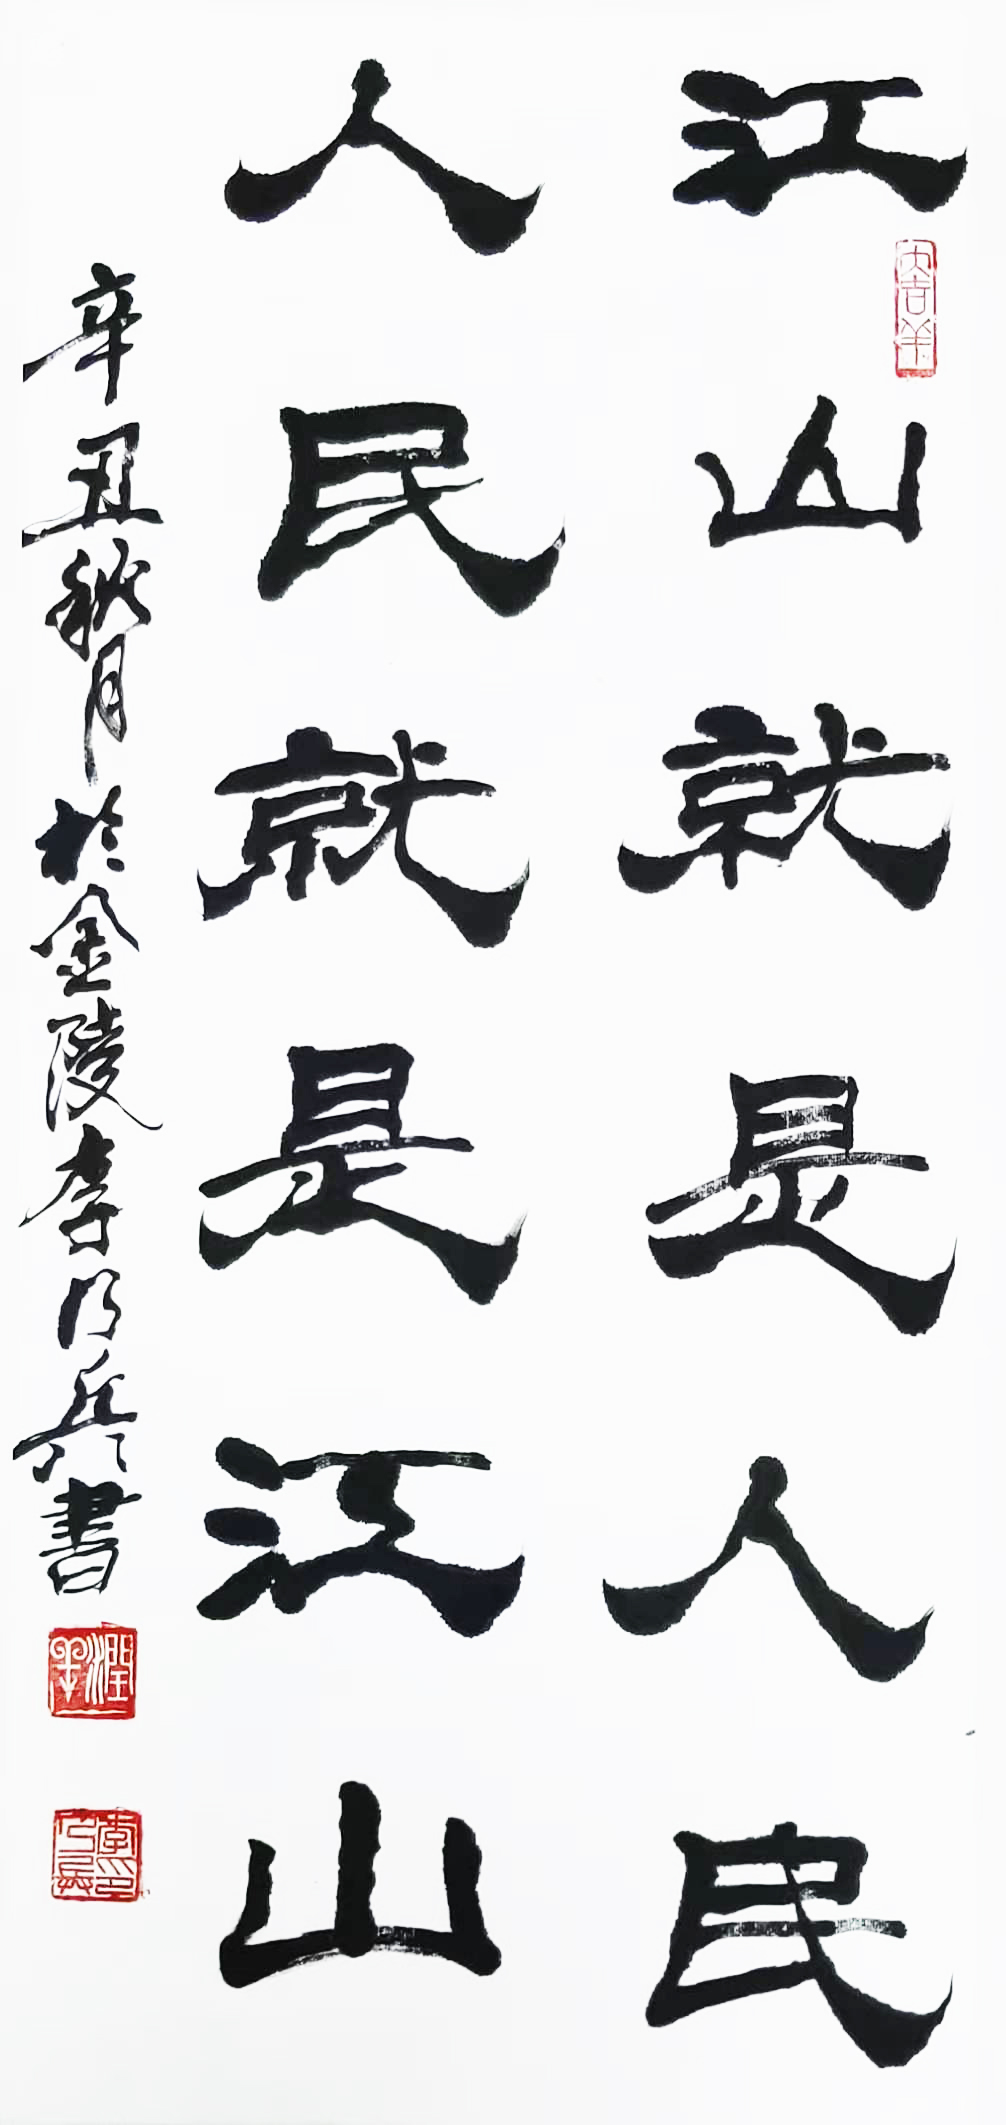 江山就是人民
人民就是江山
辛丑秋月於金陵李乃兵書
大吉羊